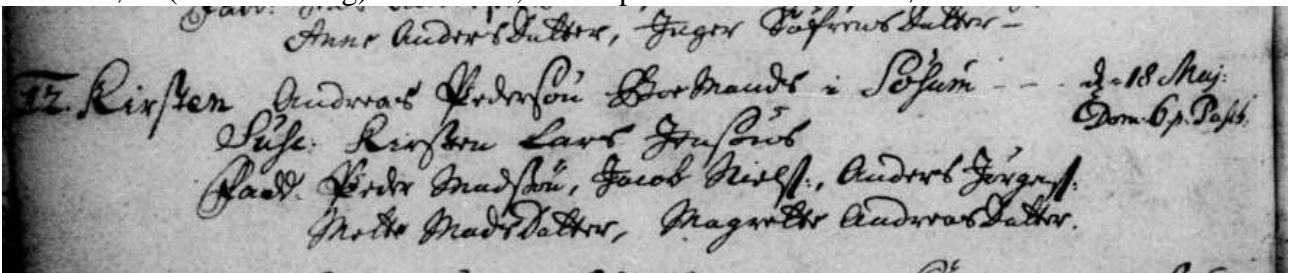 Anne Anders Datter, Inger Søfrens Datter –
12. Kirsten Andreas Pedersøn Boemands i Søsum - - d. 18 Maj:
Dom. 6 p. Pasch.
Susc: Kirsten Lars Jensøns
Fadd. Peder Madsøn, Jacob Niels:, Anders Jørgens:
Mette Mads Datter, Magrette Andreas Datter.